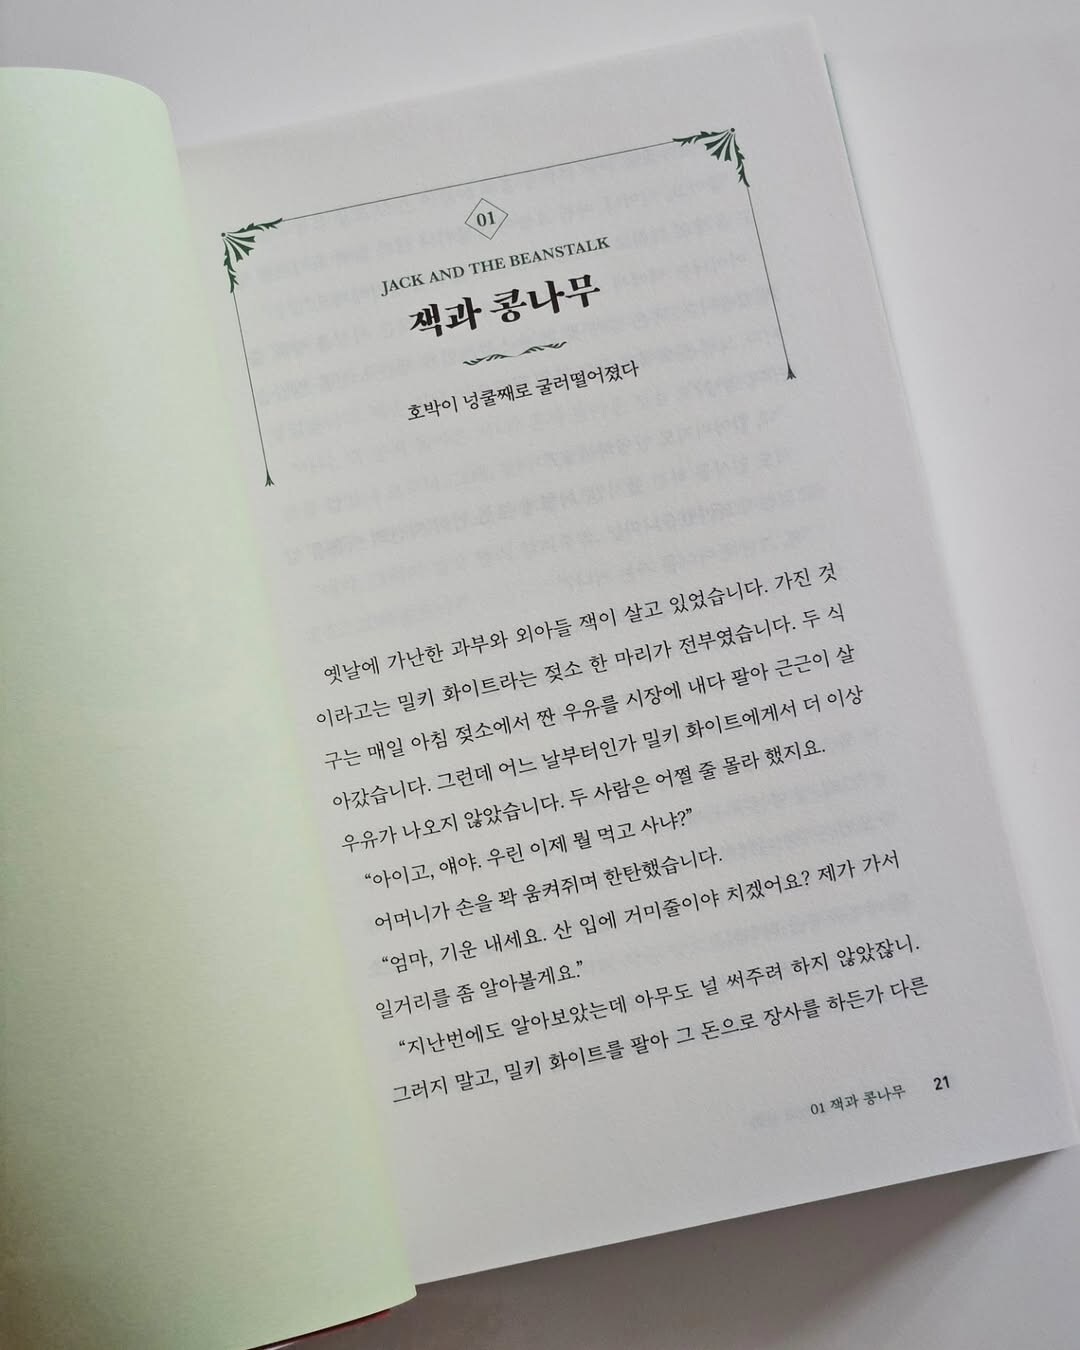 01
JACK AND THE BEANSTALK
잭과 콩나무
호박이 넝쿨째로 굴러떨어졌다
옛날에 가난한 과부와 외아들 잭이 살고 있었습니다. 가진 것
이라고는 밀키 화이트라는 젖소 한 마리가 전부였습니다. 두 식
구는 매일 아침 젖소에서 짠 우유를 시장에 내다 팔아 근근이 살
아갔습니다. 그런데 어느 날부터인가 밀키 화이트에게서 더 이상
우유가 나오지 않았습니다. 두 사람은 어쩔 줄 몰라 했지요.
“아이고, 얘야. 우린 이제 뭘 먹고 사냐?”
어머니가 손을 꽉 움켜쥐며 한탄했습니다.
“엄마, 기운 내세요. 산 입에 거미줄이야 치겠어요? 제가 가서
일거리를 좀 알아볼게요.”
“지난번에도 알아보았는데 아무도 널 써주려 하지 않았잖니.
그러지 말고, 밀키 화이트를 팔아 그 돈으로 장사를 하든가 다른
01 잭과 콩나무 21